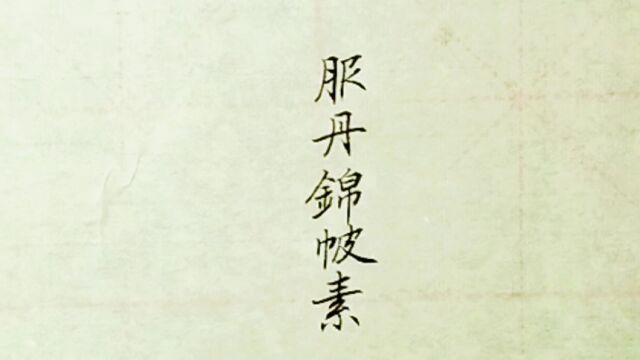 服丹錦帔素